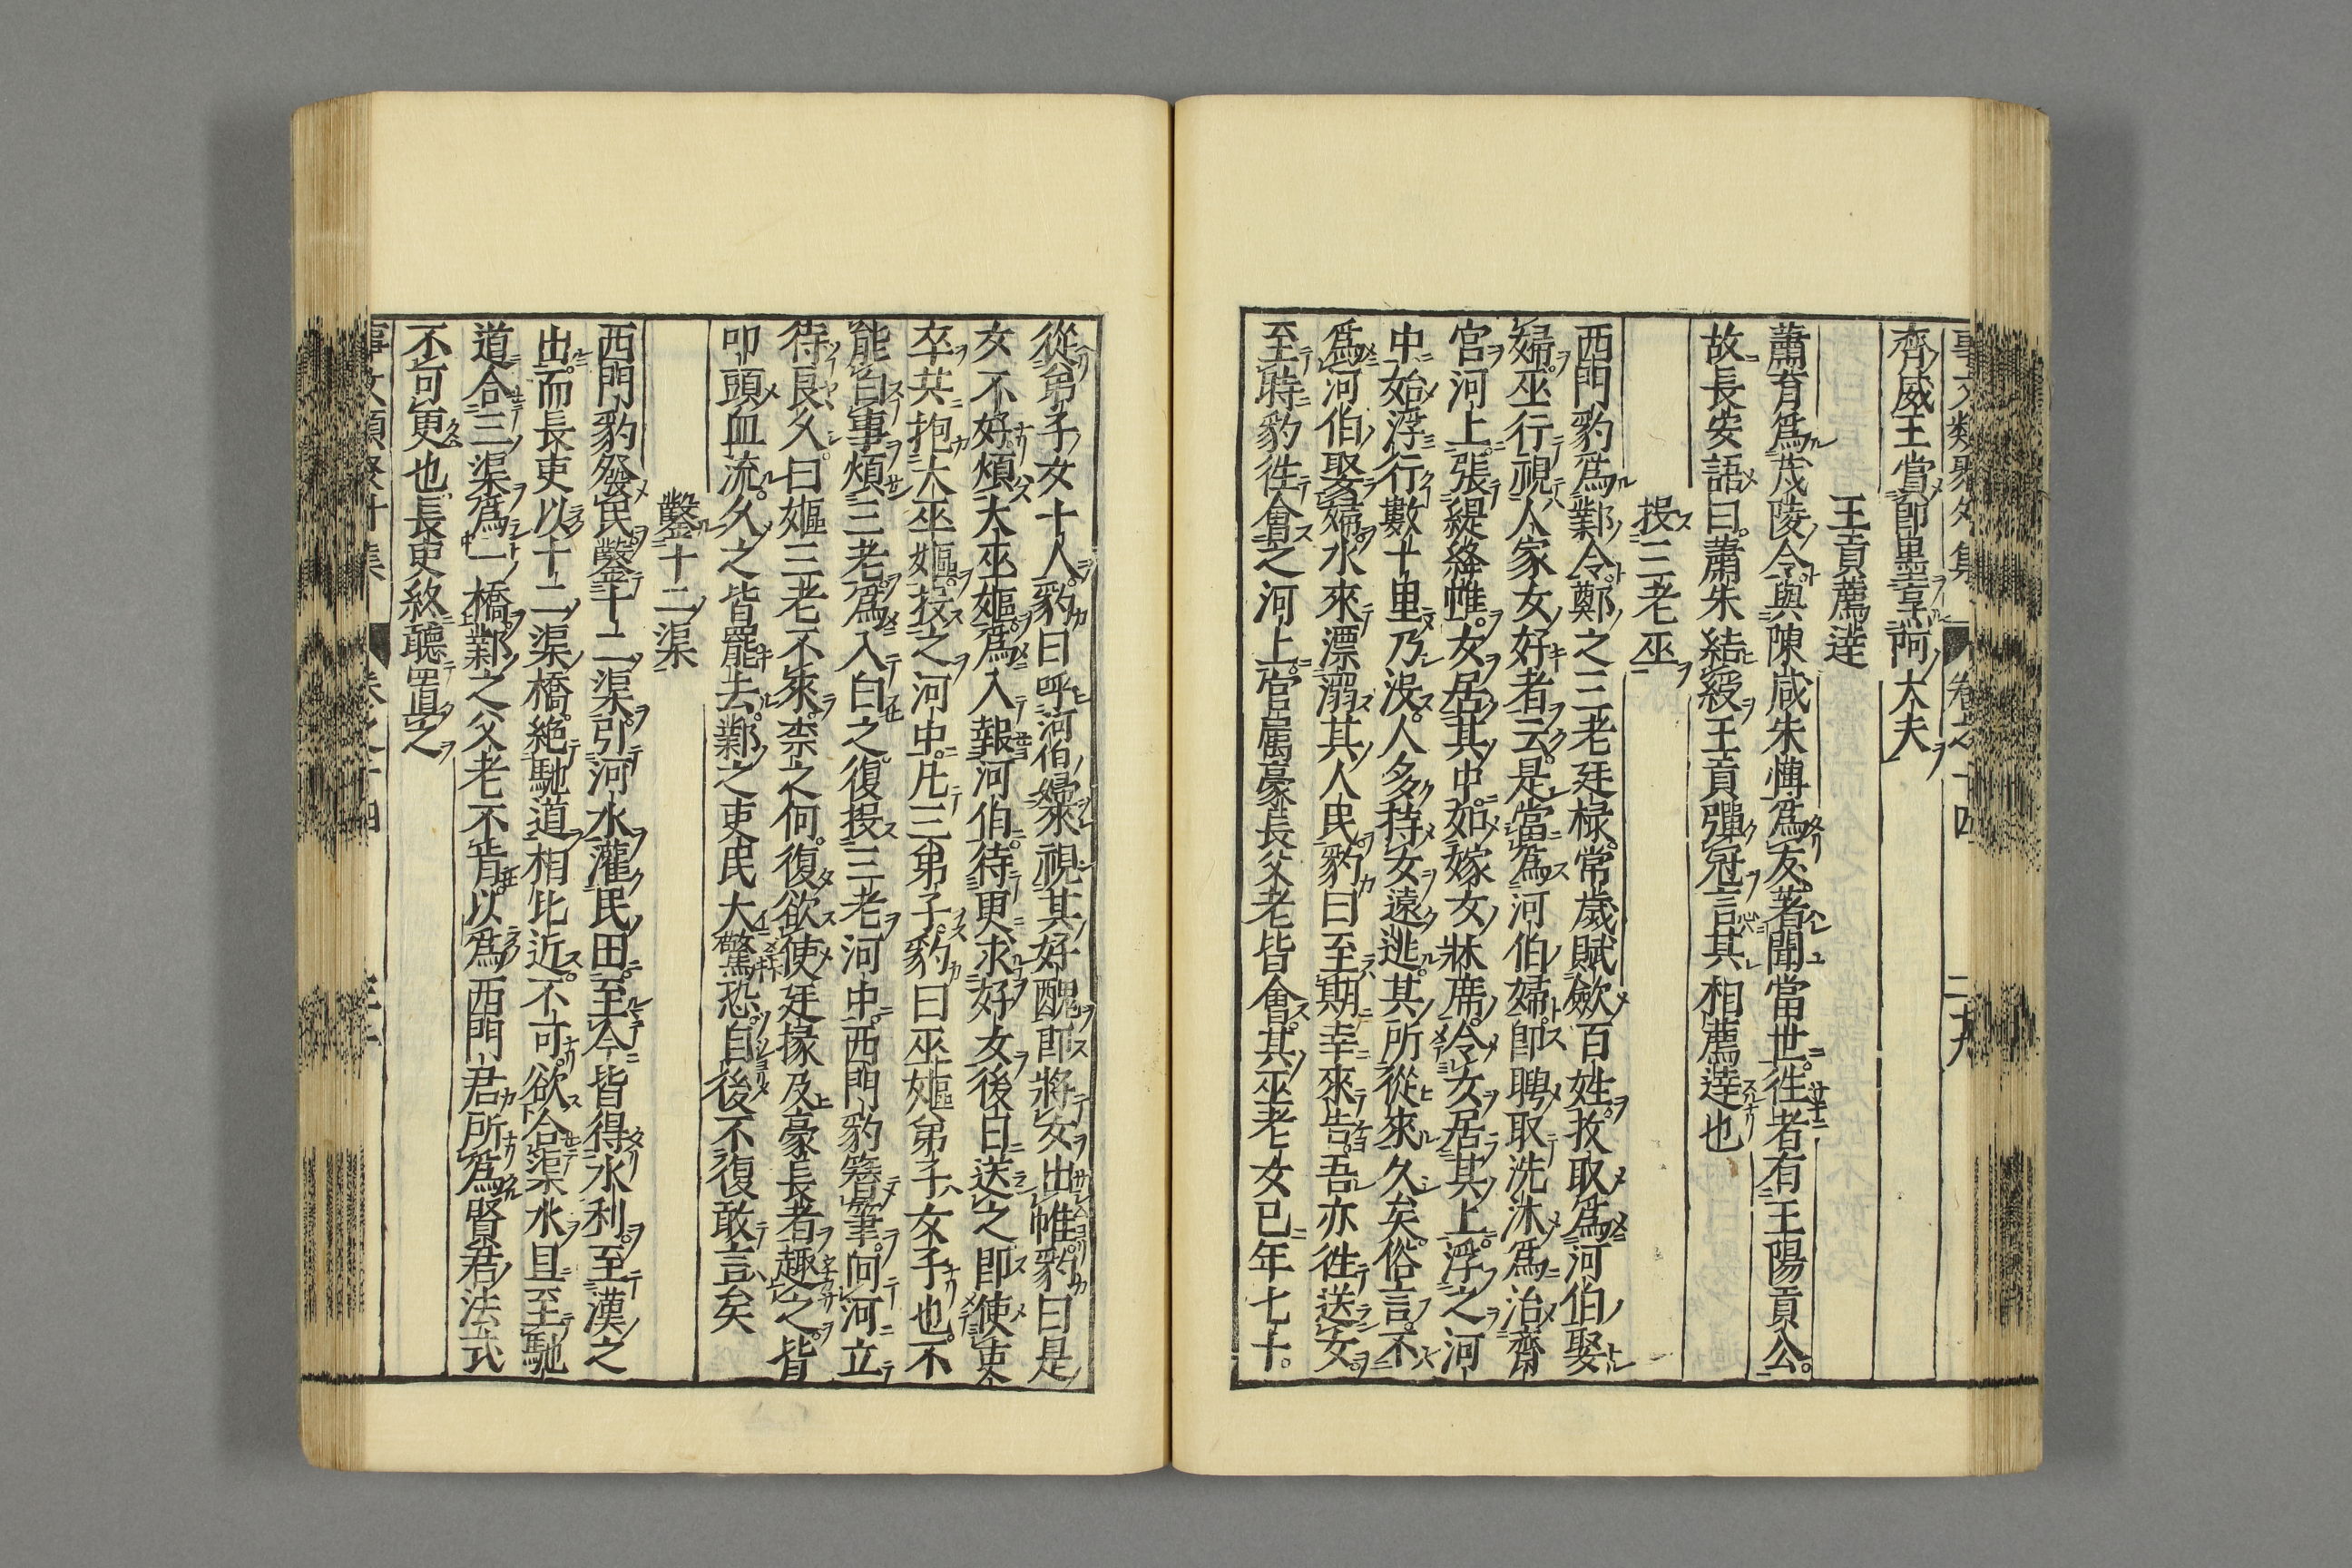 事文類聚外集 卷之十四 二十九
齊威王賞即墨烹阿大夫
王貢薦達
蕭育爲茂陵令與陳咸朱博爲友著聞當世徃者有王陽貢公
故長安語曰蕭朱結綬王貢彈冠言其相薦達也
投三老巫
西門豹爲鄴令鄭之三老廷椽常歲賦歛百姓孜取爲河伯娶
婦巫行視人家女好者云是當爲河伯婦即聘取洗沐爲治齋
宮河上張緹絳帷女居其中如嫁女牀席令女居其上浮之河
中始浮行數十里乃没人多持女遠逃其所從來久矣俗言不
爲河伯娶婦水來漂溺其人民豹曰至期幸來告吾亦徃送女
至時豹徃會之河上官屬豪長父老皆會其巫老女已年七十
從弟子女十人豹曰呼河伯婦來視其好醜即將女出帷豹曰是
女不好煩大巫嫗爲入報河伯待更求好女後日送之即使吏
卒共抱大巫嫗投之河中凡三弟子豹曰巫嫗弟子女子也不
能白事煩三老爲入白之復投三老河中西門豹簪筆向河立
待良久曰嫗三老不來柰之何復欲使廷掾及豪長者趣之皆
叩頭血流久之皆罷去鄴之吏民大驚恐自後不復敢言矣
鑿十二渠
西門豹發民鑿十二渠引河水灌民田至今皆得水利至漢之
出而長吏以十二渠橋絶馳道相比近不可欲合渠水且至馳
道合三渠爲一橋鄴之父老不肯以爲西門君所爲賢君法式
不可更也長吏終聽置之